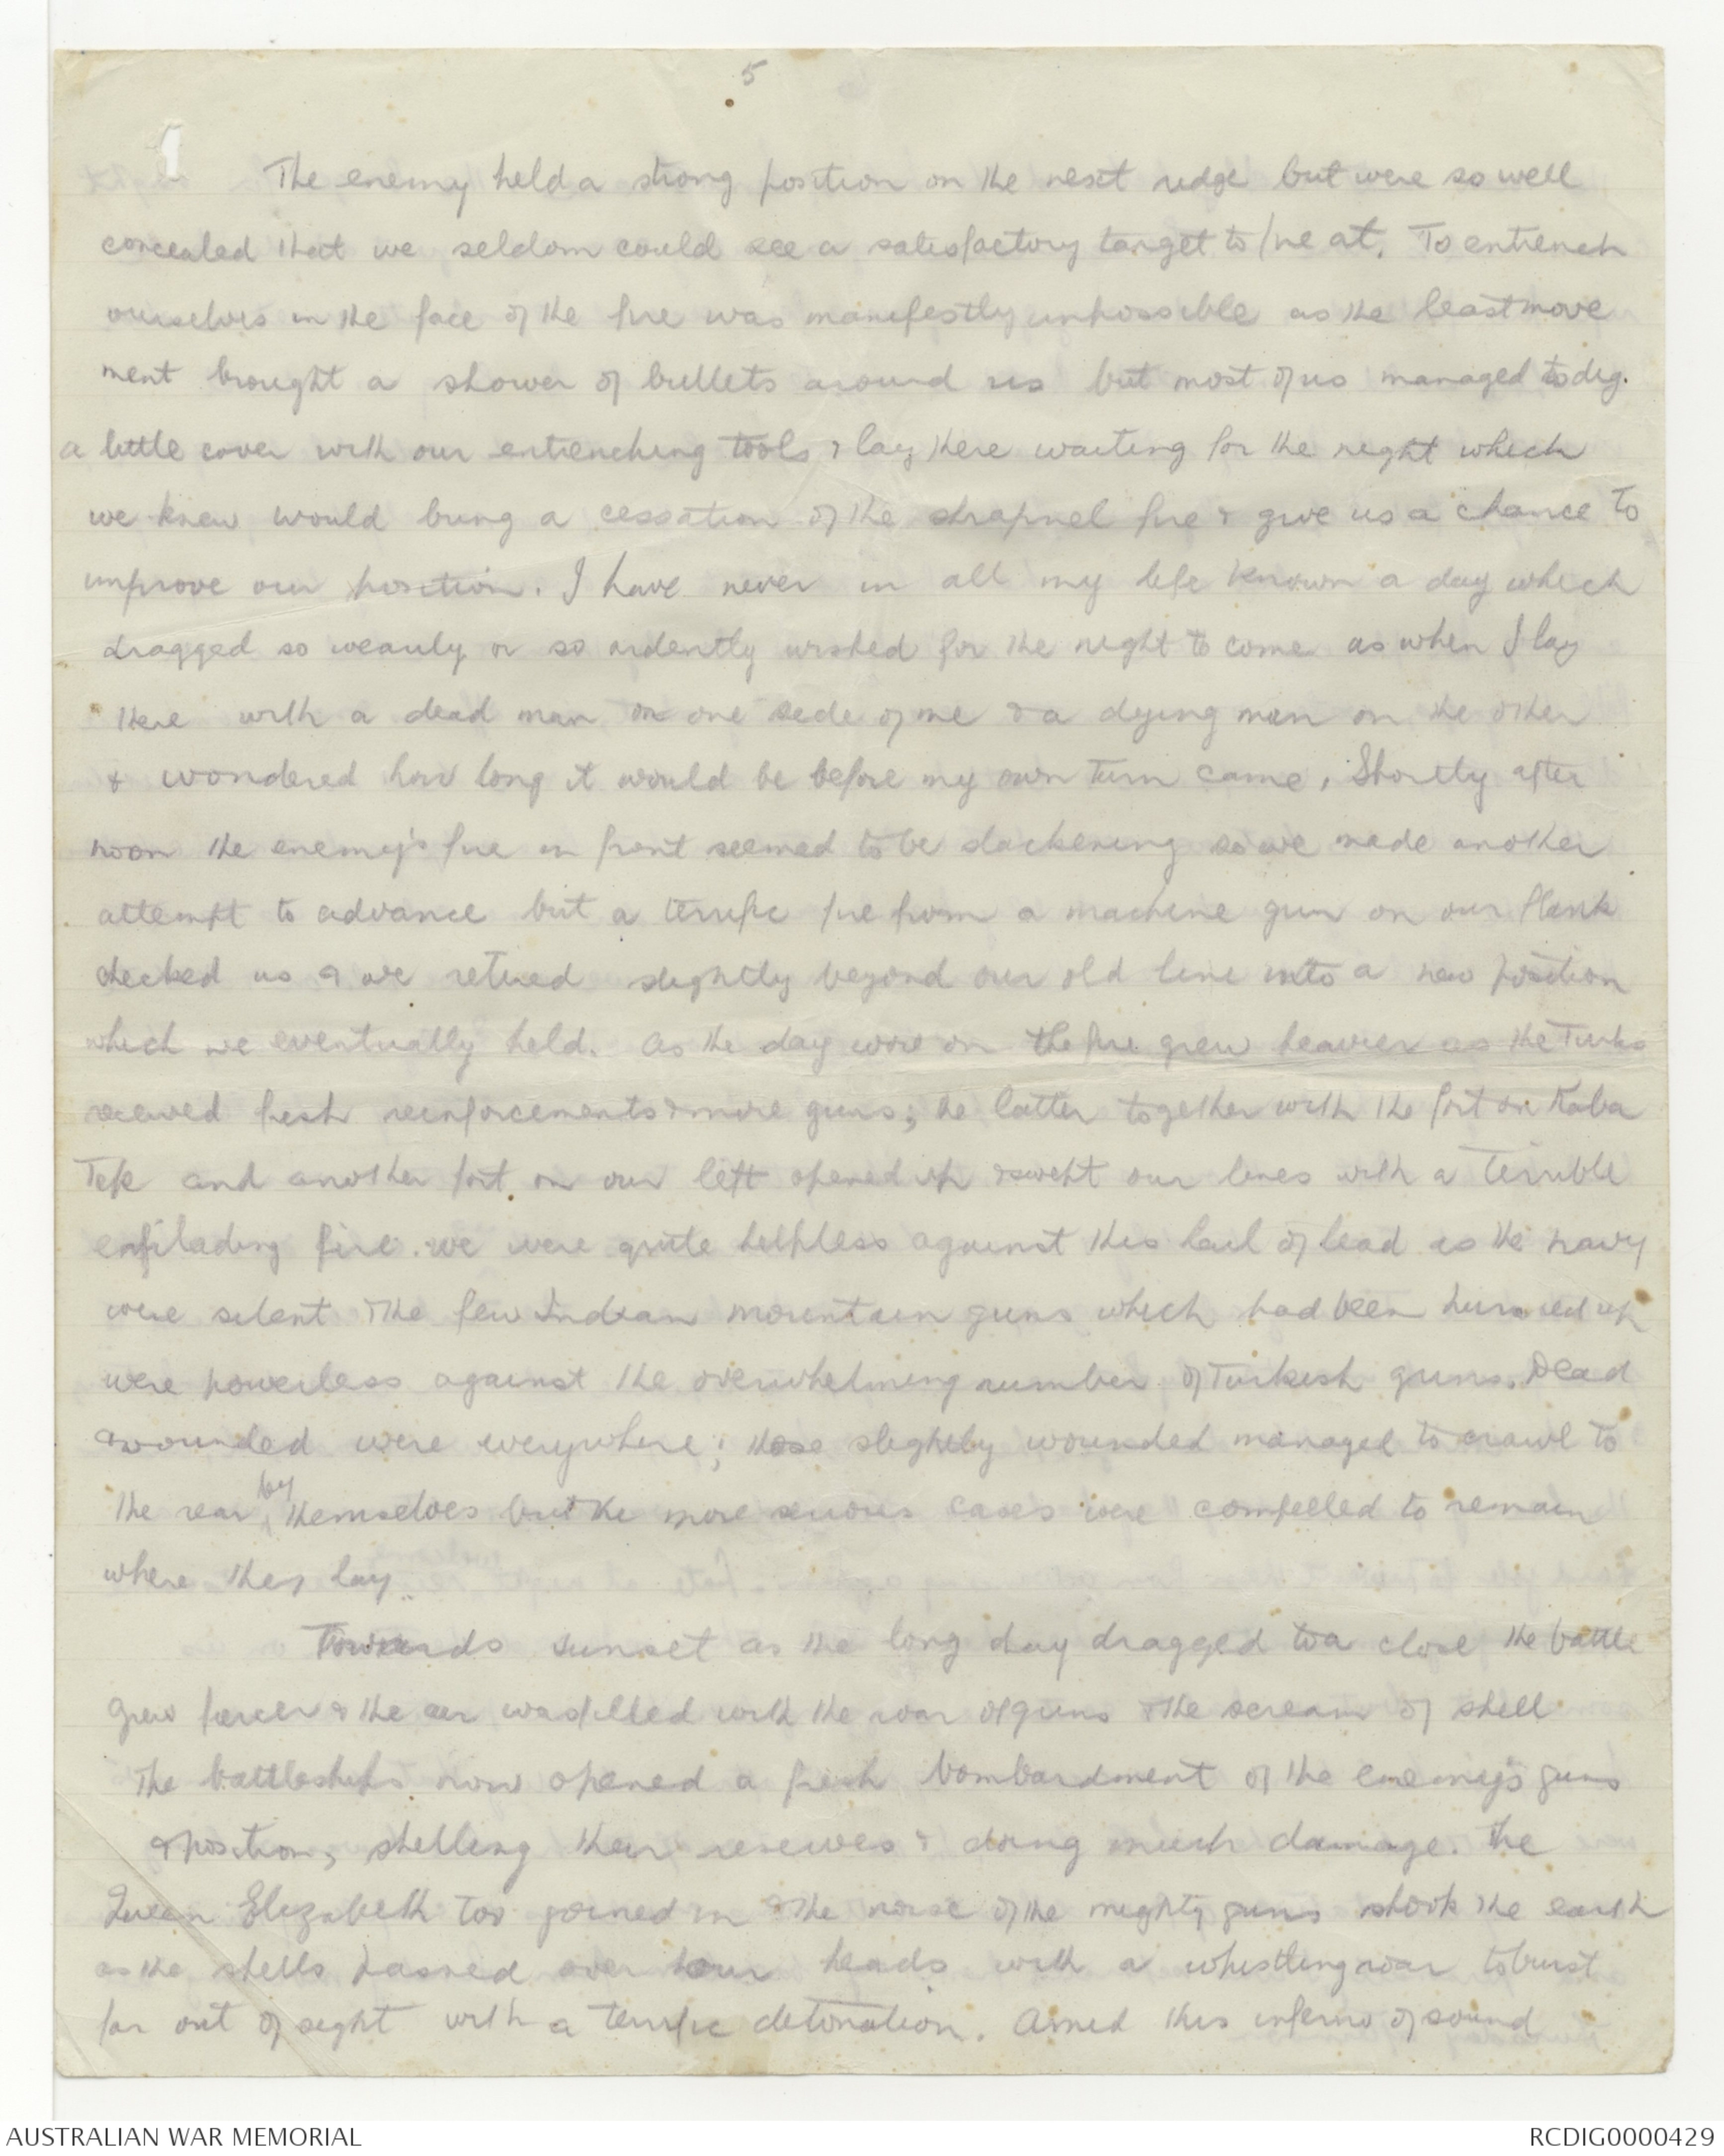 5
The enemy held a strong position on the next ridge but were so well
concealed that we seldom could see a satisfactory target to fire at. To entrench
ourselves in the face of the fire was manifestly impossible as the least move
ment brought a shower of bullets around us but most of us managed to dig.
a little cover with our entrenching tools & lay there waiting for the night which
we knew would bring a cessation of the shrapnel fire & give us a chance to
improve our position. I have never in all my life known a day which
dragged so wearily or so ardently wished for the night to come as when I lay
there with a dead man on one side of me & a dying man on the other
& wondered how long it would be before my own turn came. Shortly after
noon the enemy's fire in front seemed to be slackening so we made another
attempt to advance but a terrific fire from a machine gun on our flank
checked us & we retired slightly beyond our old line into a new position
which we eventually held. As the day wore on the fire grew heavier as the Turks
received fresh reinforcements & more guns; the latter together with the fort on Kaba
Tepe and another fort on our left opened up & swept our lines with a terrible
enfilading fire. We were quite helpless against this hail of lead as the navy
were silent & the few Indian mountain guns which had been hurried up
were powerless against the overwhelming number of Turkish guns. Dead
& wounded were everywhere; those slightly wounded managed to crawl to
the rear by themselves but the more serious cases were compelled to remain
where they lay.
Towards sunset as the long day dragged to a close the battle
grew fiercer & the air was filled with the roar of guns & the scream of shell
The battleships now opened a fresh bombardment of the enemy's guns
& position, shelling their reserves & doing much damage. The
Queen Elizabeth too joined in & the noise of the mighty guns shook the earth
as the shells passed over our heads with a whistling roar to burst
far out of sight with a terrific detonation. Amid this inferno of sound
AUSTRALIAN WAR MEMORIAL
RCDIG0000429